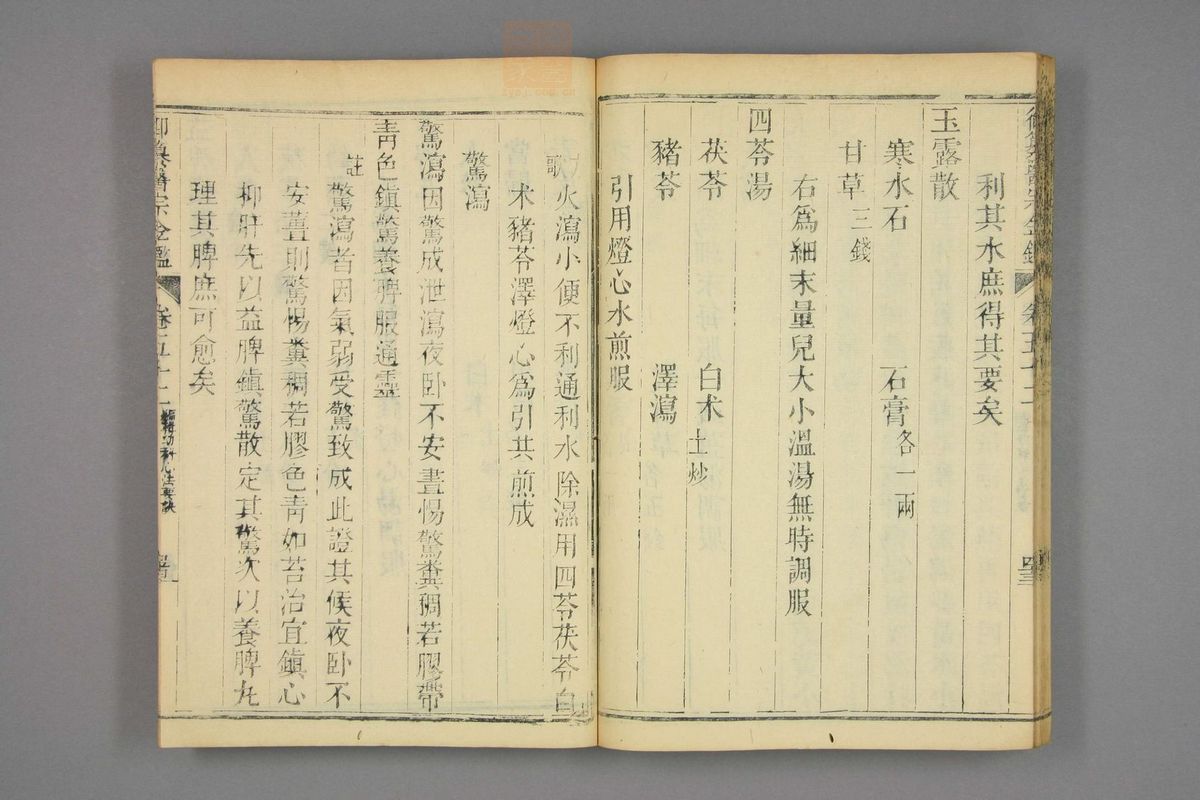 利其水庶得其要矣
玉露散
寒水石　石膏各一兩
甘草三錢
右爲細末量兒大小溫湯無時調服
四苓湯
茯苓　白术土炒
豬苓　澤瀉
引用燈心水煎服
方歌　火瀉小便不利通利水除濕用四苓茯苓白
术豬苓澤燈心爲引共煎成
驚瀉
驚瀉因驚成泄瀉夜卧不安晝惕驚糞稠若膠帶
青色鎮驚養脾服通靈
註　驚瀉者因氣弱受驚致成此證其候夜卧不
安晝則驚惕糞稠若膠色青如苔治宜鎮心
抑肝先以益脾鎮驚散定其驚次以養脾丸
理其脾庶可愈矣
御纂醫宗金鑑　卷五十二　編輯幼科心法要訣